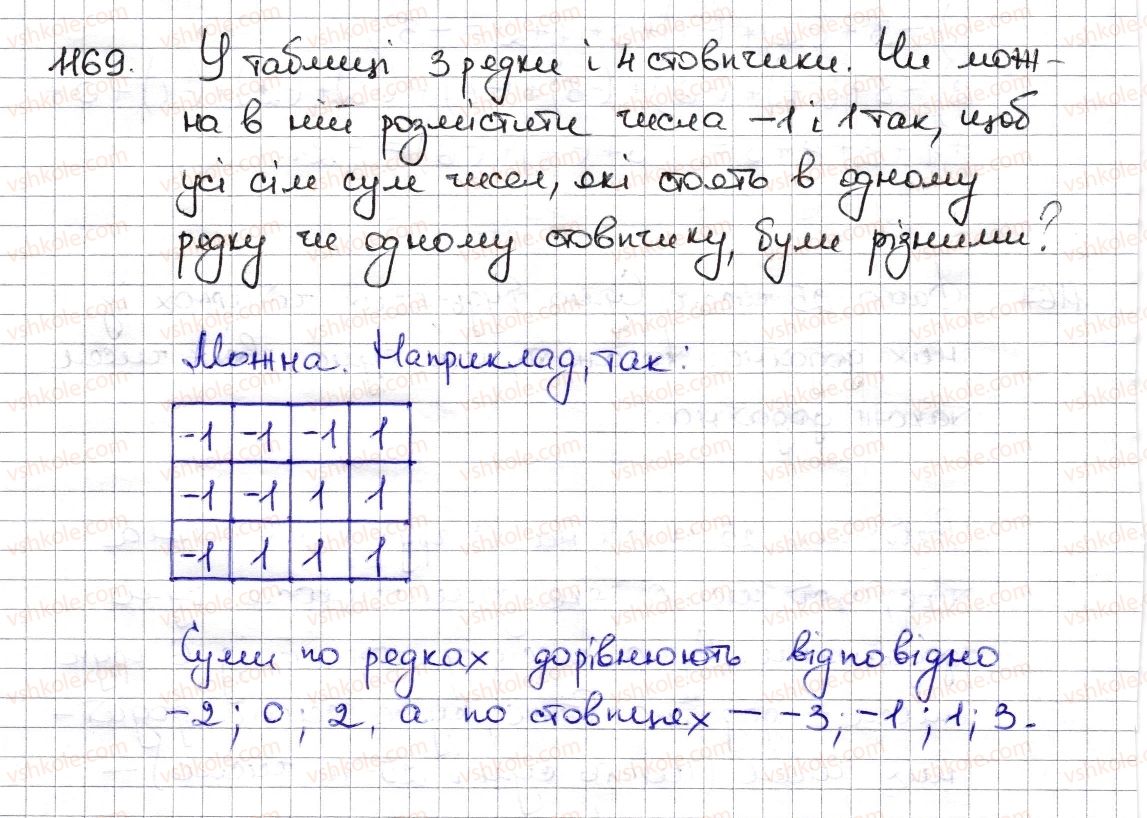 1169. У таблиці 3 рядки і 4 стовпчики. Чи мож-
на в ній розмістити числа -1 і 1 так, щоб
усі сім сум чисел, які стоять в одному
рядку чи одному стовпчику, були різними?
Можна. Наприклад, так:
-1 -1 -1 1
-1 -1 1 1
-1 1 1 1
Суми по рядках дорівнюють відповідно
-2; 0; 2, а по стовпцях — -3; -1; 1; 3.